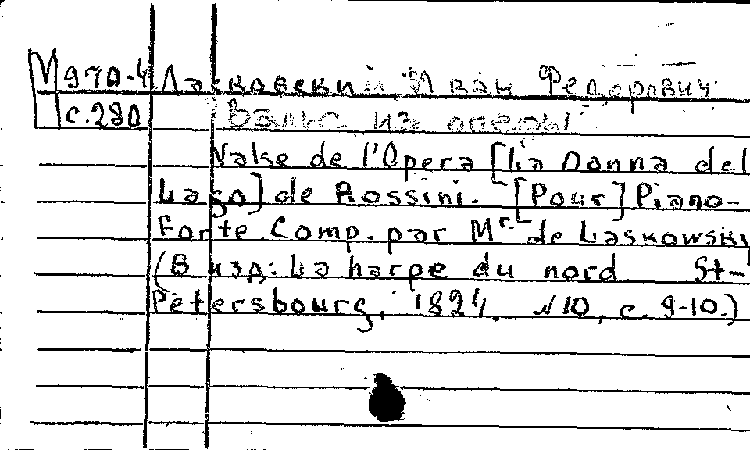 М 970-4 Ласковский Иван Федорович
с. 280 Вальс из оперы
Valse de l'Opera [La Donna del
Lago] de Rossini. [Pour] Piano-
Forte Comp. par Mr de Laskowski
(В изд: La harpe du nord St-
Petersbourg, 1824, №10, с. 9-10.)